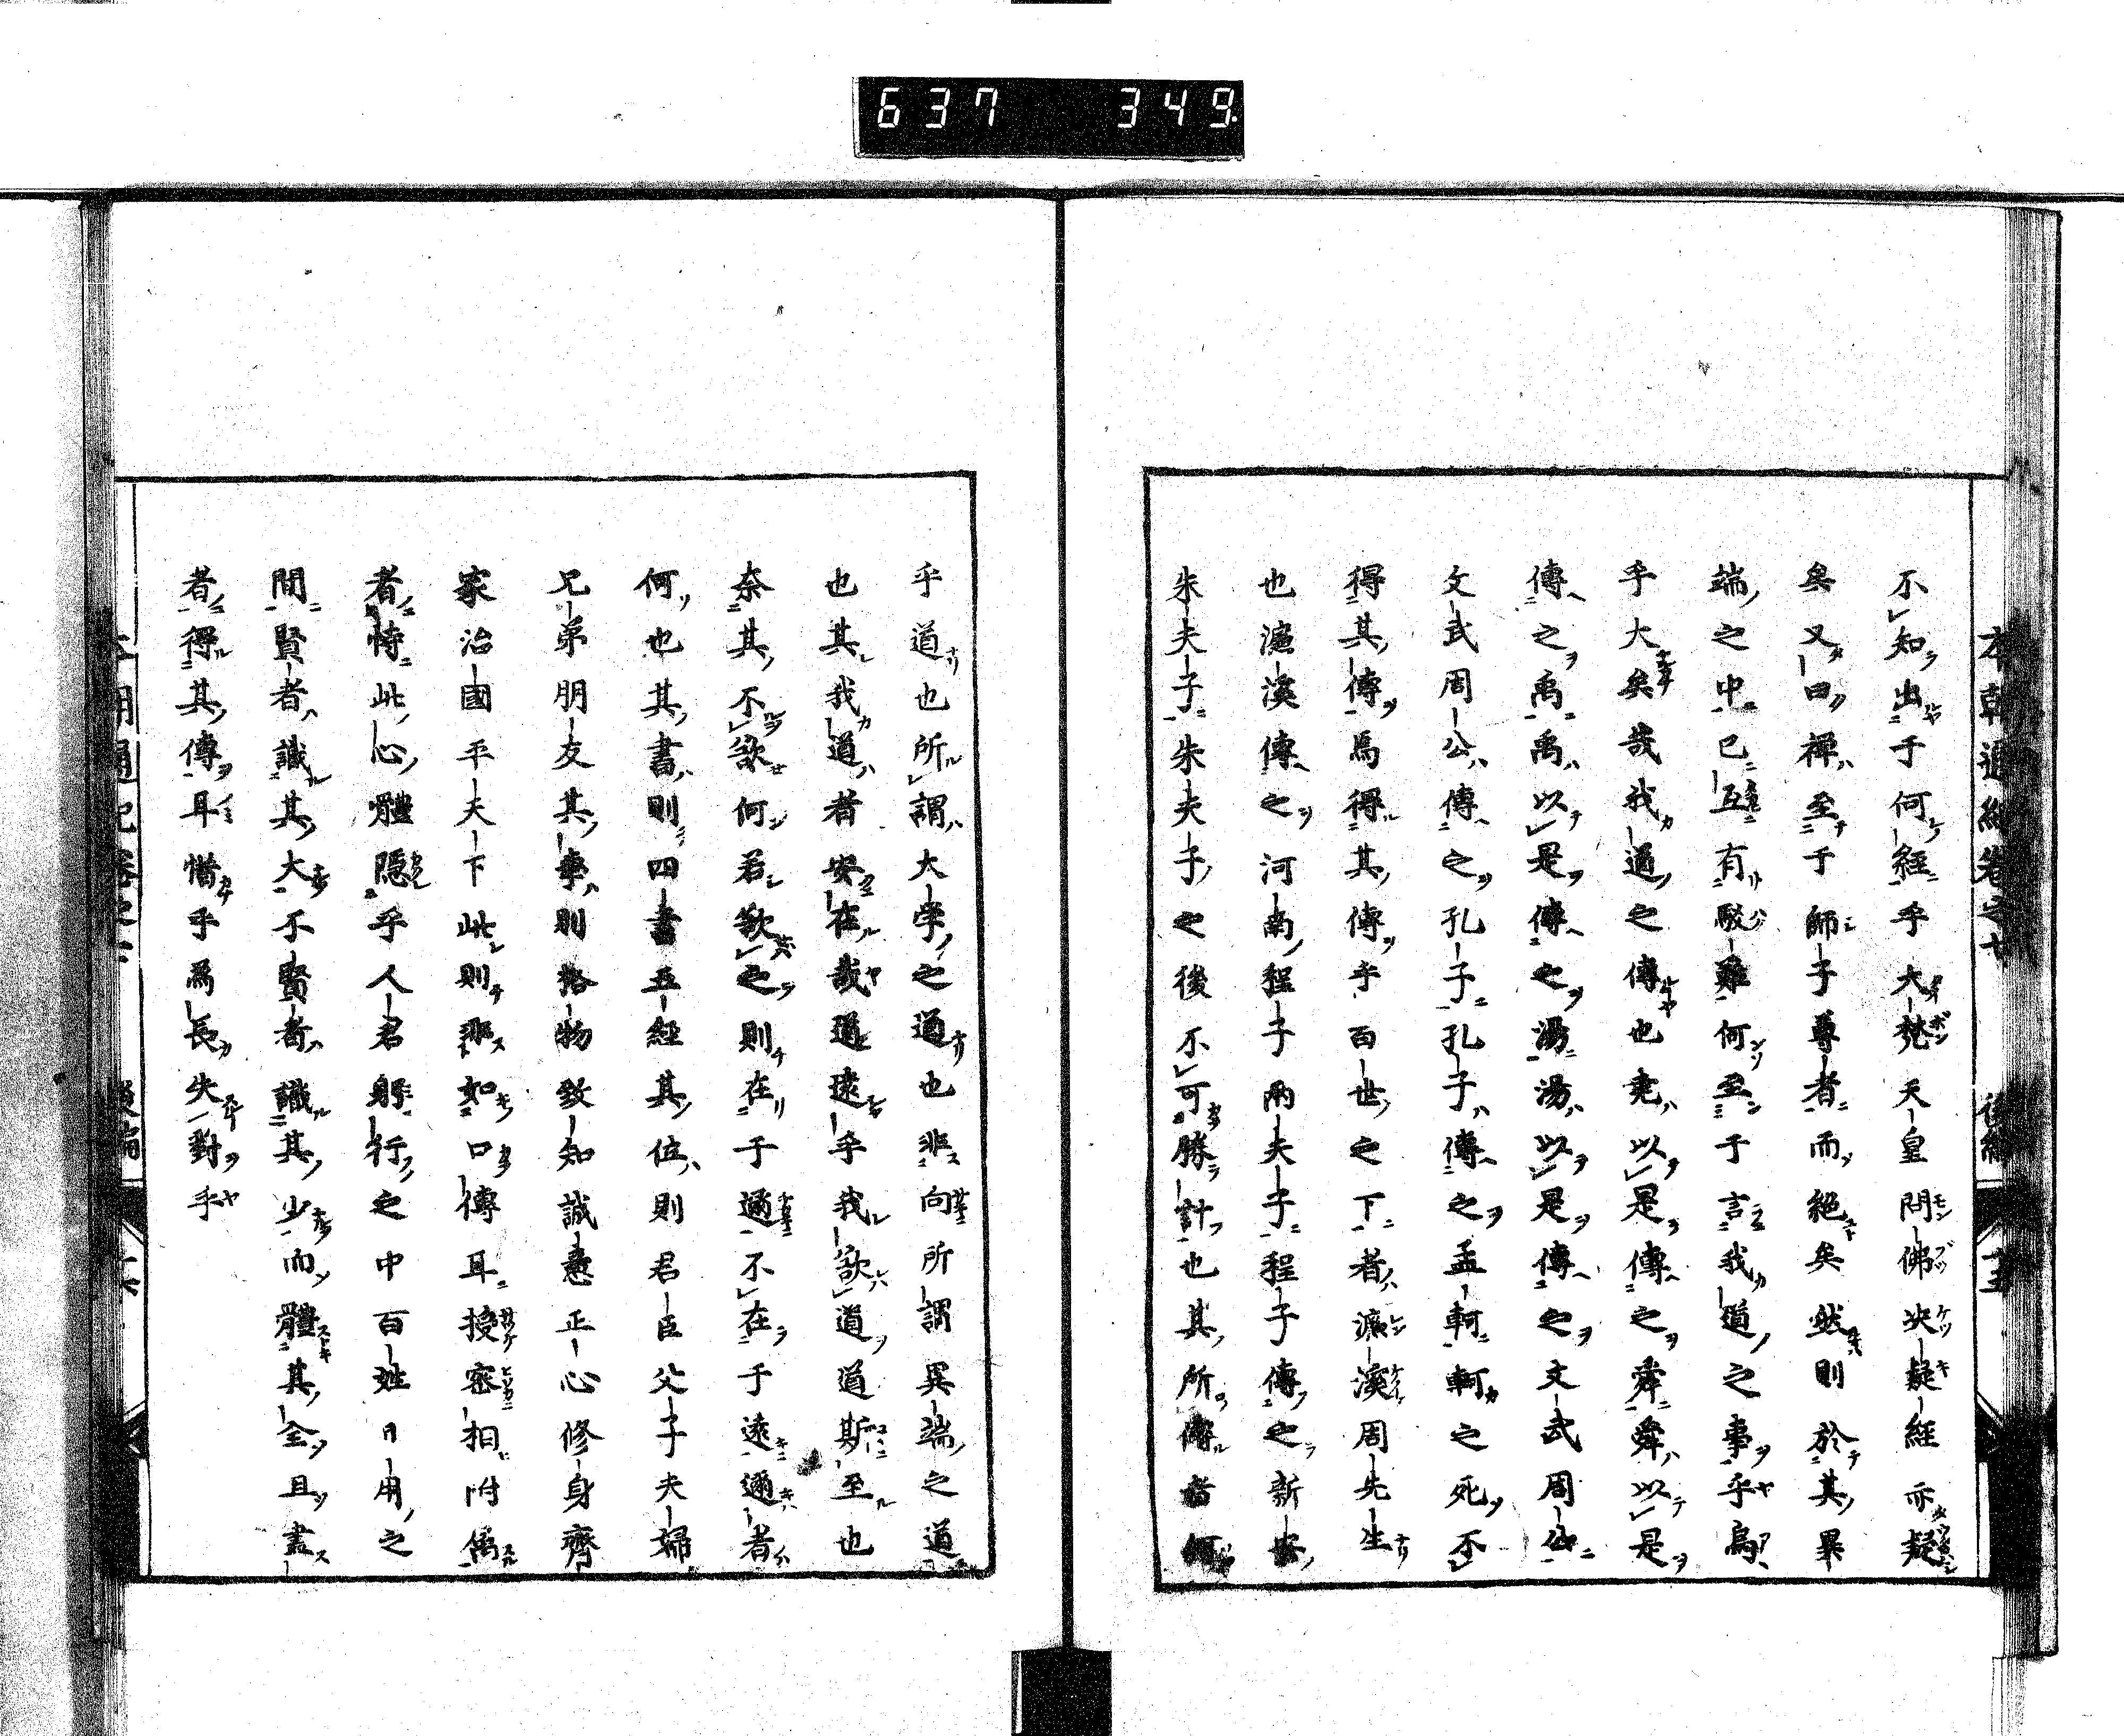 637 349
本朝通紀卷之七 後編 十五
不知出于何經乎大梵天皇問佛決疑經亦疑
矣又曰禪至于師子尊者而絕矣然則於其異
端之中已互有駁難何至于言我道之事乎烏
乎大矣哉我道之傳也堯以是傳之舜舜以是
傳之禹禹以是傳之湯湯以是傳之文武周公
文武周公傳之孔子孔子傳之孟軻軻之死不
得其傳焉得其傳乎百世之下者濂溪周先生
也濂溪傳之河南程子兩夫子程子傳之新安
朱夫子朱夫子之後不可勝計也其所傳者何
乎道也所謂大學之道也非向所謂異端之道
也其我道者安在哉道遠乎我欲道道斯至也
奈其不欲何若欲之則在于邇不在于遠邇者
何也其書則四書五經其位則君臣父子夫婦
兄弟朋友其事則格物致知誠意正心修身齊
家治國平天下此則非如口傳耳授密相附偽
者恃此心體隱乎人君躬行之中百姓日用之
間賢者識其大不賢者識其少而體其全且盡
者得其傳耳惜乎為長失對乎